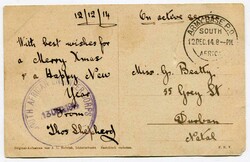 12/12/14
On active
ARMY BASE P.O.
SOUTH
12 DEC 14. 8-PM
AFRICA
With best wishes for
a Merry Xmas
& a Happy New
Year
From
Thos Shepherd
Miss. G. Beatty
55 Grey St
Durban
Natal